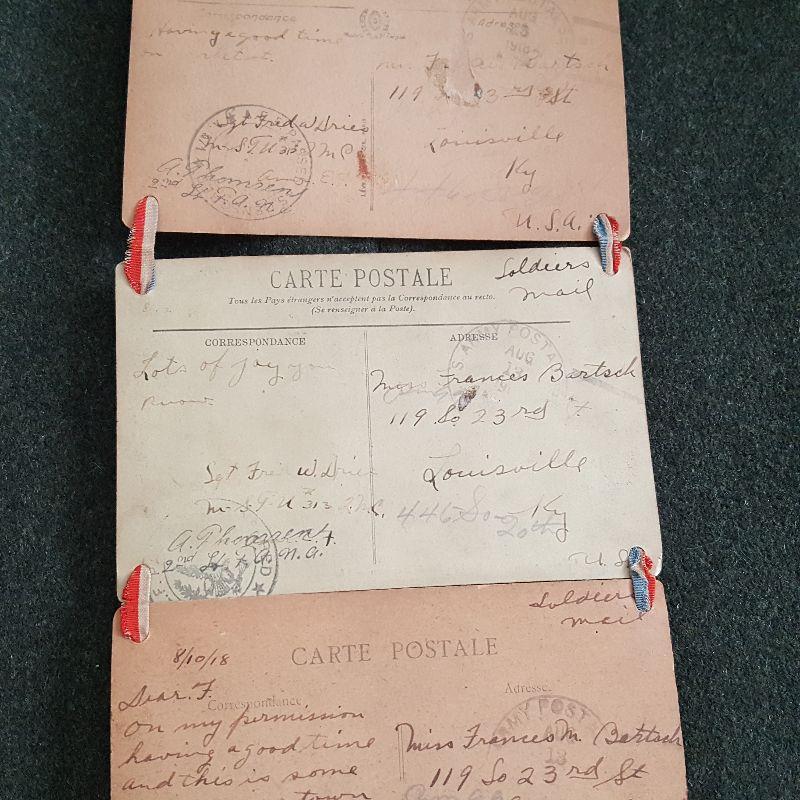 Correspondance
Having a good time
on
Sgt Fred W. Dries
M.S.T.U 313 M.C.
A. Thomsen
2nd Lt. F.A. N.A.
PASSED
Adresse
AUG
Miss Frances Bartsch
119 So 23rd St
Louisville
Ky
U.S.A.
Soldiers
mail
CARTE POSTALE
Tous les Pays étrangers n'acceptent pas la Correspondance au recto.
(Se renseigner à la Poste).
CORRESPONDANCE
Lots of joy you
know
Sgt Fred W. Dries
M.S.T.U 313 M.C.
A. Thomsen
2nd Lt. F.A. N.A.
ADRESSE
ARMY POSTAL
AUG
13
Miss Frances Bartsch
119 So 23rd St
Louisville
Ky
446 So 20th
U.S.
Soldiers
mail
8/10/18
CARTE POSTALE
Correspondance
Dear F.
On my permission
having a good time
and this is some
town
Adresse
ARMY POST
13
Miss Frances M. Bartsch
119 So 23rd St